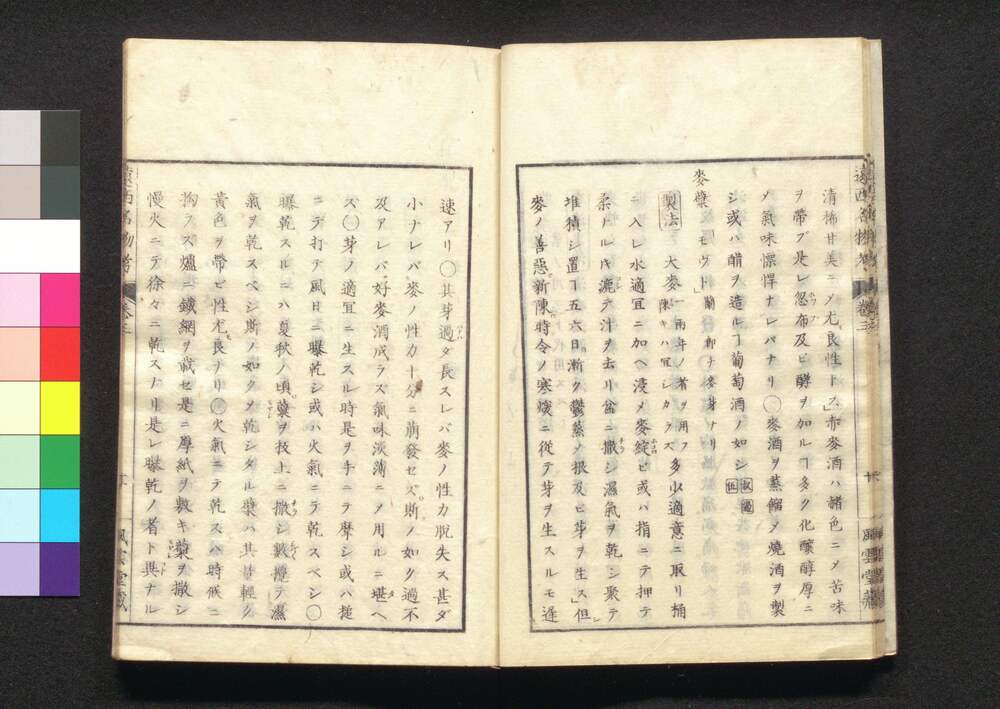 清怖甘美ニメ尤良性トス」赤麥酒ハ諸色ニメ苦味
ヲ帶ブ是レ忽布及ビ酵ヲ加ルヿ多ク化釀醇厚ニ
メ氣味慓悍ナレバナリ〇麥酒ヲ蒸餾メ燒酒ヲ製
シ或ハ醋ヲ造ルヿ葡萄酒ノ如シ
麥櫱
モウト 蘭 卽チ麥芽ナリ
製法 大麥一兩年ノ者ヲ用フ陳キハ冝シカラズ多少適意ニ取リ桶
ニ入レ水適冝ニ加ヘ浸メ麥綻ビ或ハ指ニテ押テ
柔ナルキ漉テ汁ヲ去リ盆ニ撒シ濕氣ヲ乾シ聚テ
堆積シ置ヿ五六日漸ク鬱蒸メ根及ビ芽ヲ生ス」但シ
麥ノ善惡新陳時令ノ寒煖ニ從テ芽ヲ生スルモ遲
速アリ〇其芽過ダ長スレバ麥ノ性力脫失ス甚ダ
小ナレバ麥ノ性力十分ニ萠發セズ斯ノ如ク過不
及アレバ好麥酒成ラズ氣味淡薄ニメ用ルニ堪ヘ
ズ〇芽ノ適冝ニ生スル時是ヲ手ニテ摩シ或ハ槌
ニテ打テ風日ニ曝乾シ或ハ火氣ニテ乾スベシ〇
曝乾スルニハ夏秋ノ頃蘗ヲ扱上ニ撒シ攪テ濕
氣ヲ乾スベシ斯ノ如クメ乾シタル櫱ハ其輕ク
黃色ヲ帶ビ性尤良ナリ〇火氣ニテ乾スハ時候ニ
拘ラズ爐ニ鐵網ヲ載セ是ニ厚紙ヲ敷キ蘗ヲ撒シ
慢火ニテ徐々ニ乾スナリ是レ曝乾ノ者ト異ナル
遠西名物考
卷三
風雲堂藏